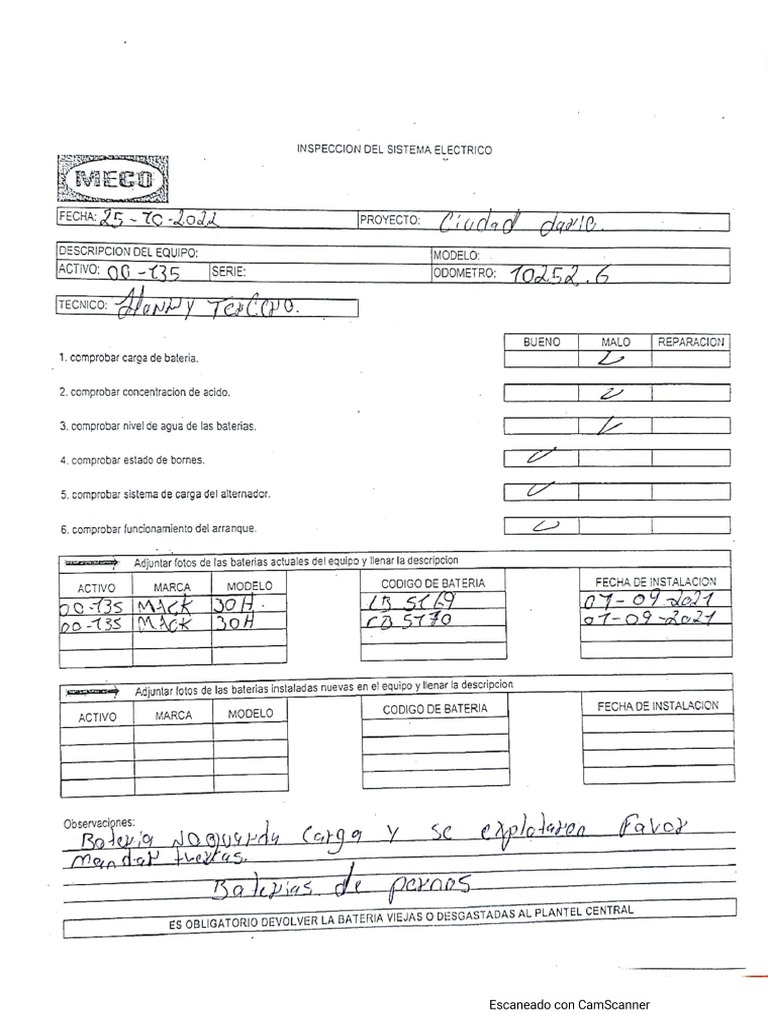 INSPECCION DEL SISTEMA ELECTRICO
MECO
FECHA: 25-10-2022 PROYECTO: Ciudad dario.
DESCRIPCION DEL EQUIPO: MODELO:
ACTIVO: 00-135 SERIE: ODOMETRO: 10252.6
TECNICO: Tercero.
BUENO MALO REPARACION
1. comprobar carga de bateria.
2. comprobar concentracion de acido.
3. comprobar nivel de agua de las baterias.
4. comprobar estado de bornes.
5. comprobar sistema de carga del alternador.
6. comprobar funcionamiento del arranque.
Adjuntar fotos de las baterias actuales del equipo y llenar la descripcion
ACTIVO MARCA MODELO CODIGO DE BATERIA FECHA DE INSTALACION
00-135 MACK 30H. CB 5169 01-09-2021
00-135 MACK 30H CB 5170 01-09-2021
Adjuntar fotos de las baterias instaladas nuevas en el equipo y llenar la descripcion
ACTIVO MARCA MODELO CODIGO DE BATERIA FECHA DE INSTALACION
Observaciones:
Bateria No guarda carga y se explotaron Favor
mandar
Baterias de pernos
ES OBLIGATORIO DEVOLVER LA BATERIA VIEJAS O DESGASTADAS AL PLANTEL CENTRAL
Escaneado con CamScanner